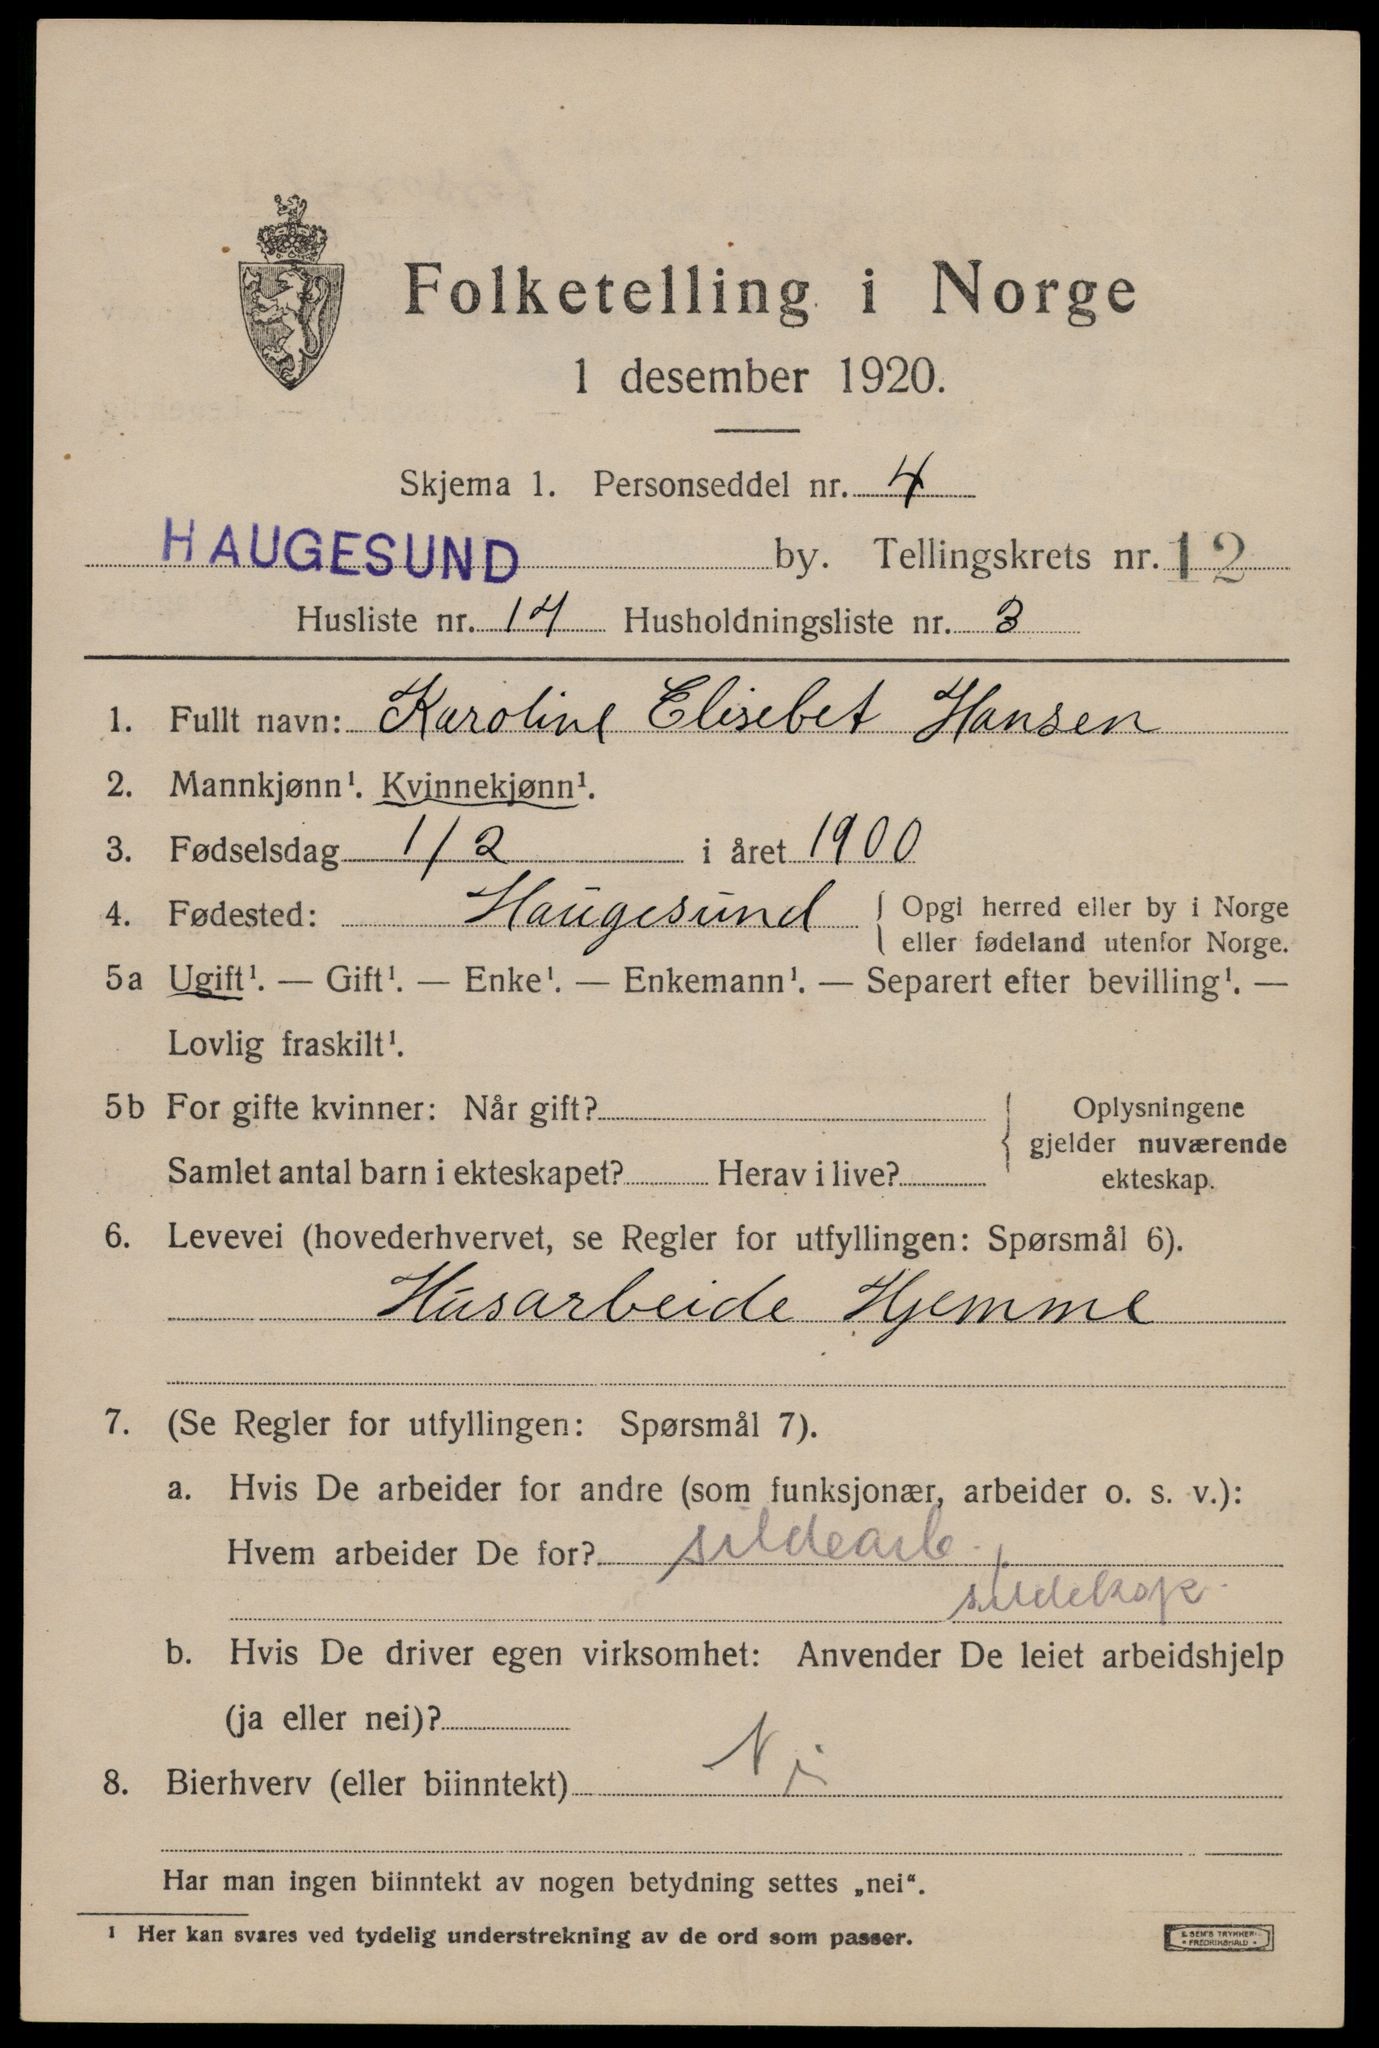 Folketelling i Norge
1 desember 1920.
Skjema 1. Personseddel nr. 4
HAUGESUND by. Tellingskrets nr. 12
Husliste nr. 14 Husholdningsliste nr. 3
1. Fullt navn: Karoline Elisebet Hansen
2. Mannkjønn¹. Kvinnekjønn¹.
3. Fødselsdag 1/2 i året 1900
4. Fødested: Haugesund { Opgi herred eller by i Norge
eller fødeland utenfor Norge.
5a Ugift¹. — Gift¹. — Enke¹. — Enkemann¹. — Separert efter bevilling¹. —
Lovlig fraskilt¹.
5b For gifte kvinner: Når gift? { Oplysningene
gjelder nuværende
Samlet antal barn i ekteskapet? Herav i live? ekteskap.
6. Levevei (hovederhvervet, se Regler for utfyllingen: Spørsmål 6).
Husarbeide Hjemme
7. (Se Regler for utfyllingen: Spørsmål 7).
a. Hvis De arbeider for andre (som funksjonær, arbeider o. s. v.):
Hvem arbeider De for? sildearb.
sildekop.
b. Hvis De driver egen virksomhet: Anvender De leiet arbeidshjelp
(ja eller nei)?
8. Bierhverv (eller biinntekt)
Har man ingen biinntekt av nogen betydning settes „nei“.
¹ Her kan svares ved tydelig understrekning av de ord som passer.